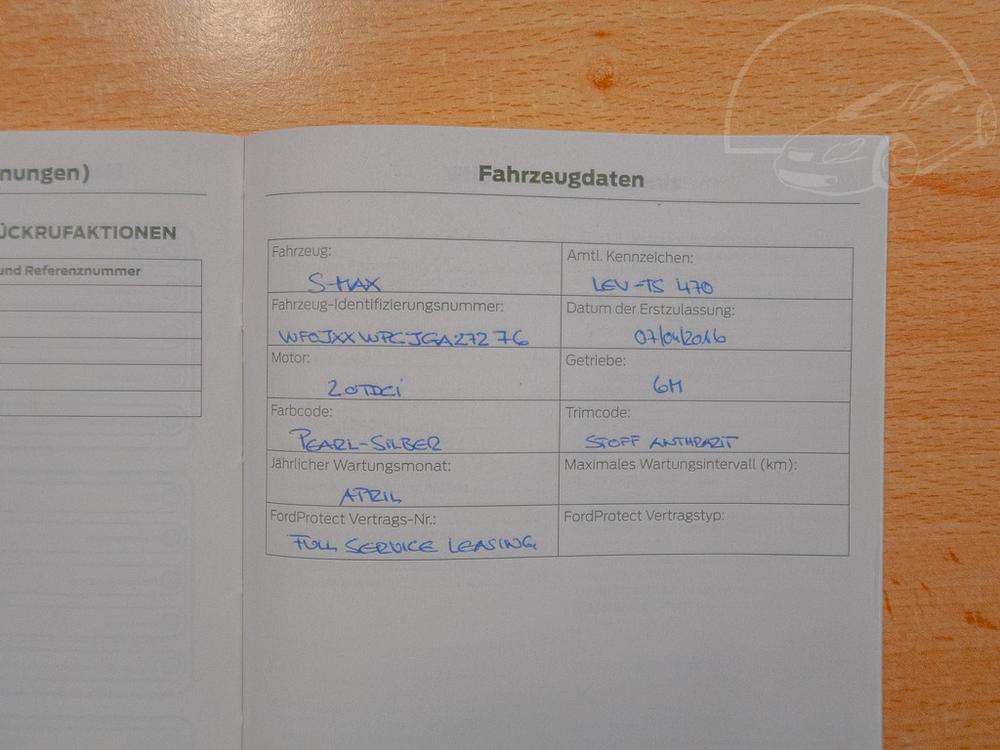 nungen)
ÜCKRUFAKTIONEN
und Referenznummer
Fahrzeugdaten
Fahrzeug:
S-MAX
Amtl. Kennzeichen:
LEV-TS 470
Fahrzeug-Identifizierungsnummer:
WF0JXXWPCJGA27276
Datum der Erstzulassung:
07/04/2016
Motor:
2.0TDCi
Getriebe:
6M
Farbcode:
PEARL-SILBER
Trimcode:
STOFF ANTHRAZIT
Jährlicher Wartungsmonat:
APRIL
Maximales Wartungsintervall (km):
FordProtect Vertrags-Nr.:
FULL SERVICE LEASING
FordProtect Vertragstyp: